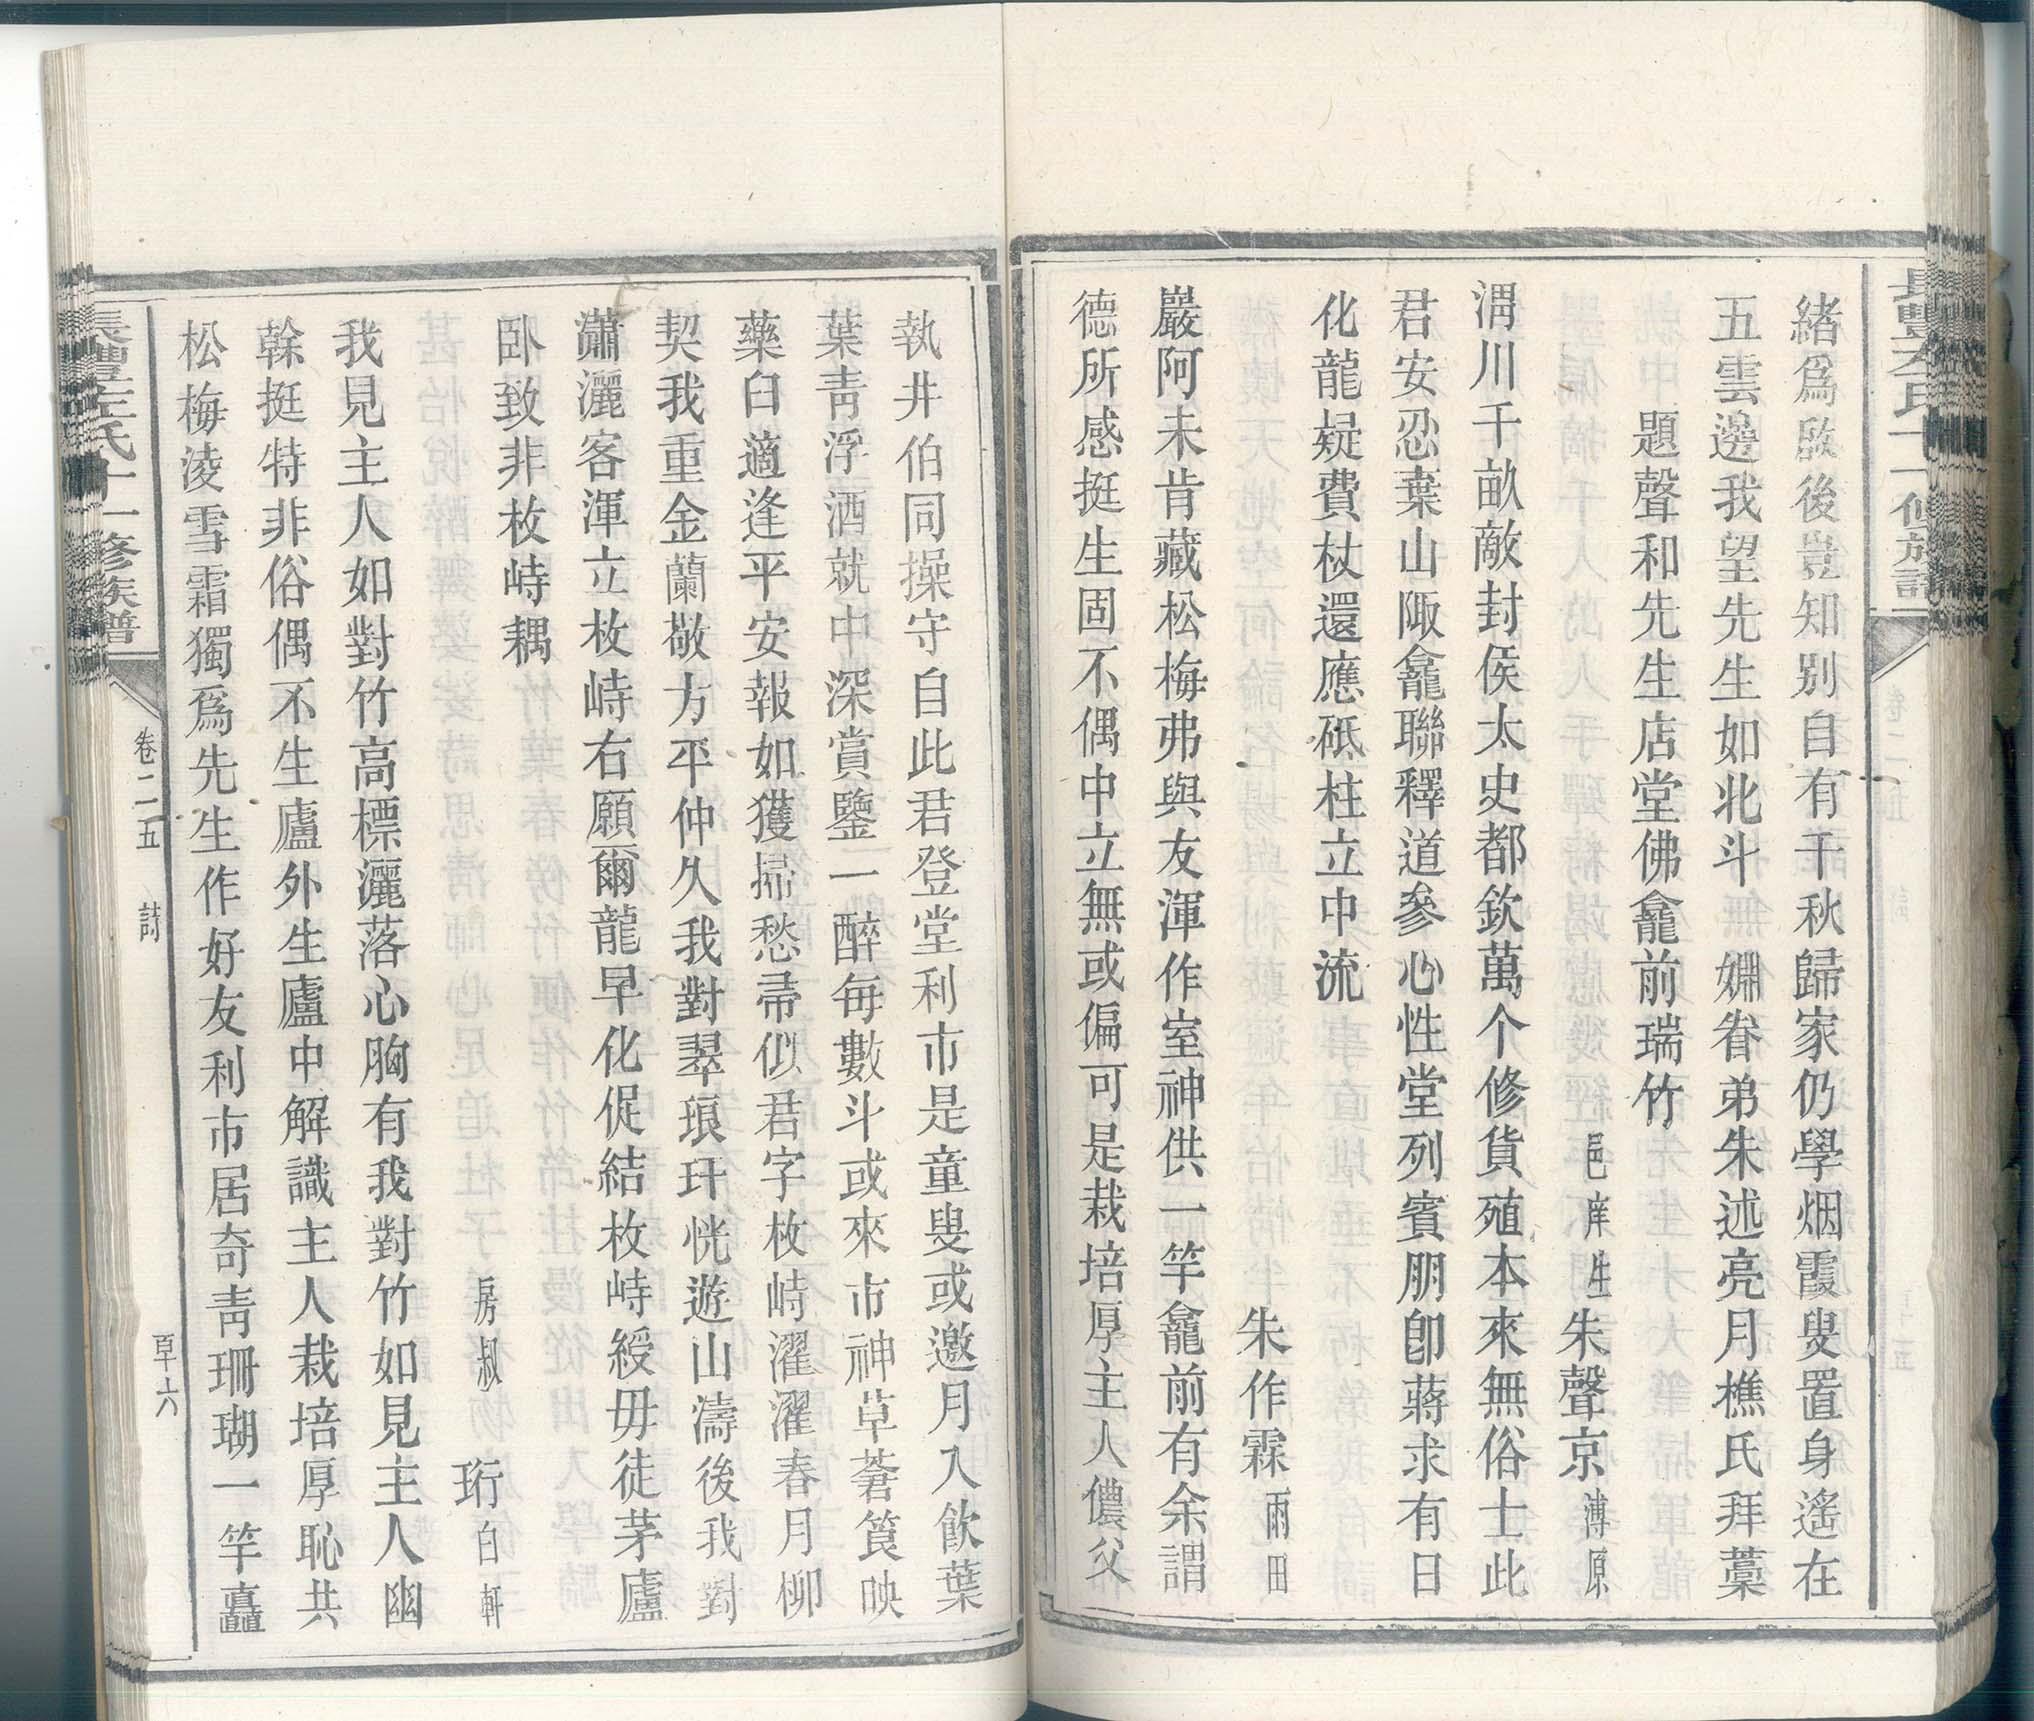 緒爲啟後豈知別自有千秋歸家仍學烟霞叟置身遙在
五雲邊我望先生如北斗　姻眷弟朱述亮月樵氏拜藁
題聲和先生店堂佛龕前瑞竹
邑庠生朱聲京溥原
渭川千畝敵封侯太史都欽萬个修貨殖本來無俗士此
君安忍棄山陬龕聯釋道參心性堂列賓朋卽蔣求有日
化龍疑費杖還應砥柱立中流
朱作霖雨田
巖阿未肯藏松梅弗與友渾作室神供一竿龕前有余謂
德所感挺生固不偶中立無或偏可是栽培厚主人儂父
執井伯同操守自此君登堂利市是童叟或邀月入飲葉
葉靑浮酒就中深賞鑒一醉每數斗或來市神草蒼筤映
藥臼適逢平安報如獲掃愁帚似君字枚峙濯濯春月柳
契我重金蘭敬方平仲久我對翠琅玕恍遊山濤後我對
瀟灑客渾立枚峙右願爾龍早化促結枚峙綬毋徒茅廬
卧致非枚峙耦
房叔　珩白軒
我見主人如對竹高標灑落心胸有我對竹如見主人幽
榦挺特非俗偶不生廬外生廬中解識主人栽培厚恥共
松梅淩雪霜獨爲先生作好友利市居奇靑珊瑚一竿矗
長豐左氏十一修族譜
卷二五　詩